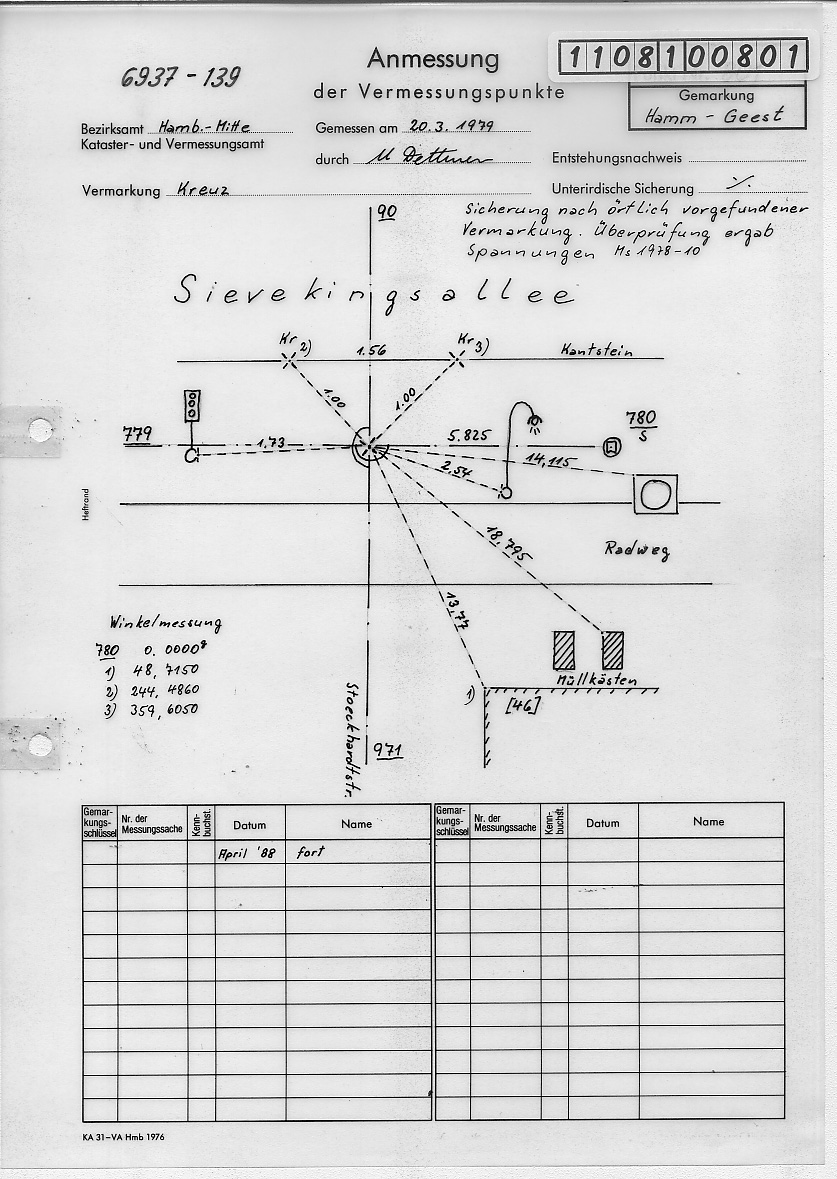 6937 - 139
Anmessung
der Vermessungspunkte
1108100801
Gemarkung
Hamm - Geest
Bezirksamt Hamb.-Mitte
Kataster- und Vermessungsamt
Gemessen am 20.3.1979
durch
Entstehungsnachweis
Vermarkung Kreuz
Unterirdische Sicherung ·/.
90
Sicherung nach örtlich vorgefundener
Vermarkung. Überprüfung ergab
Spannungen Ms 1978-10
Sievekingsallee
Kr 2)
1.56
Kr 3)
Kantstein
1.00
1.00
779
1.73
5.825
780
S
14,115
2,54
Heftrand
18,795
Radweg
13,77
Winkelmessung
780 0.0000g
1) 48,7150
2) 244,4860
3) 359,6050
Müllkästen
1)
[46]
Stoeckhardtstr.
971
Gemar-kungs-schlüssel Nr. der Messungssache Kenn-buchst. Datum Name Gemar-kungs-schlüssel Nr. der Messungssache Kenn-buchst. Datum Name
April '88 fort
KA 31–VA Hmb 1976